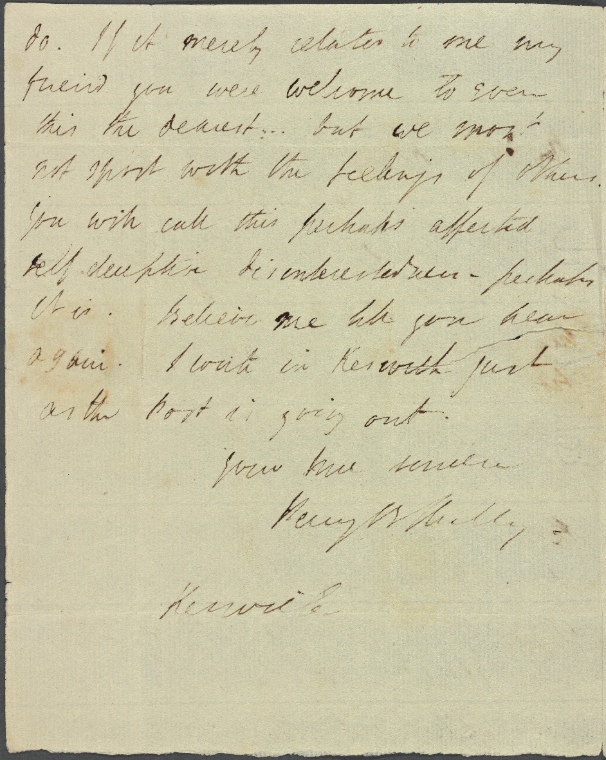 do. If it merely related to me my
friend you were welcome to even
this the dearest... but we must
not sport with the feelings of others.
You will call this perhaps affected
self deceptive disinterestedness - perhaps
it is. Believe me till you hear
again. I write in Keswick just
as the Post is going out.
Your true sincere
Percy B Shelley
Keswick